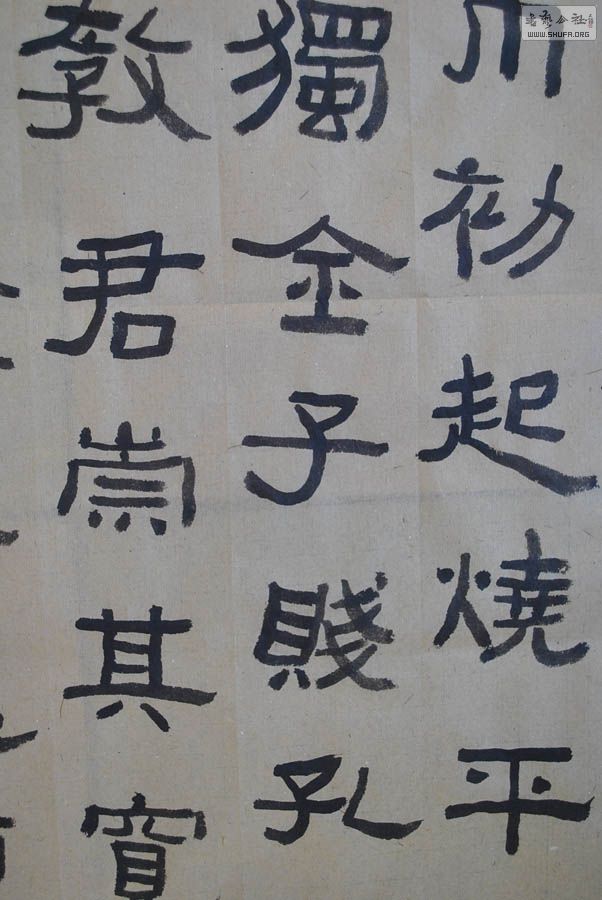 巾初起燒平
獨金子賤孔
教君崇其
書藝公社
WWW.SHUFA.ORG